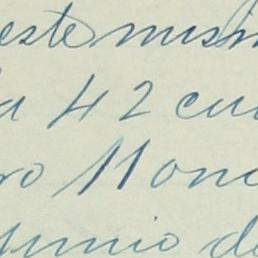 este mism
a 42 cu
ro 11 onc
unio de